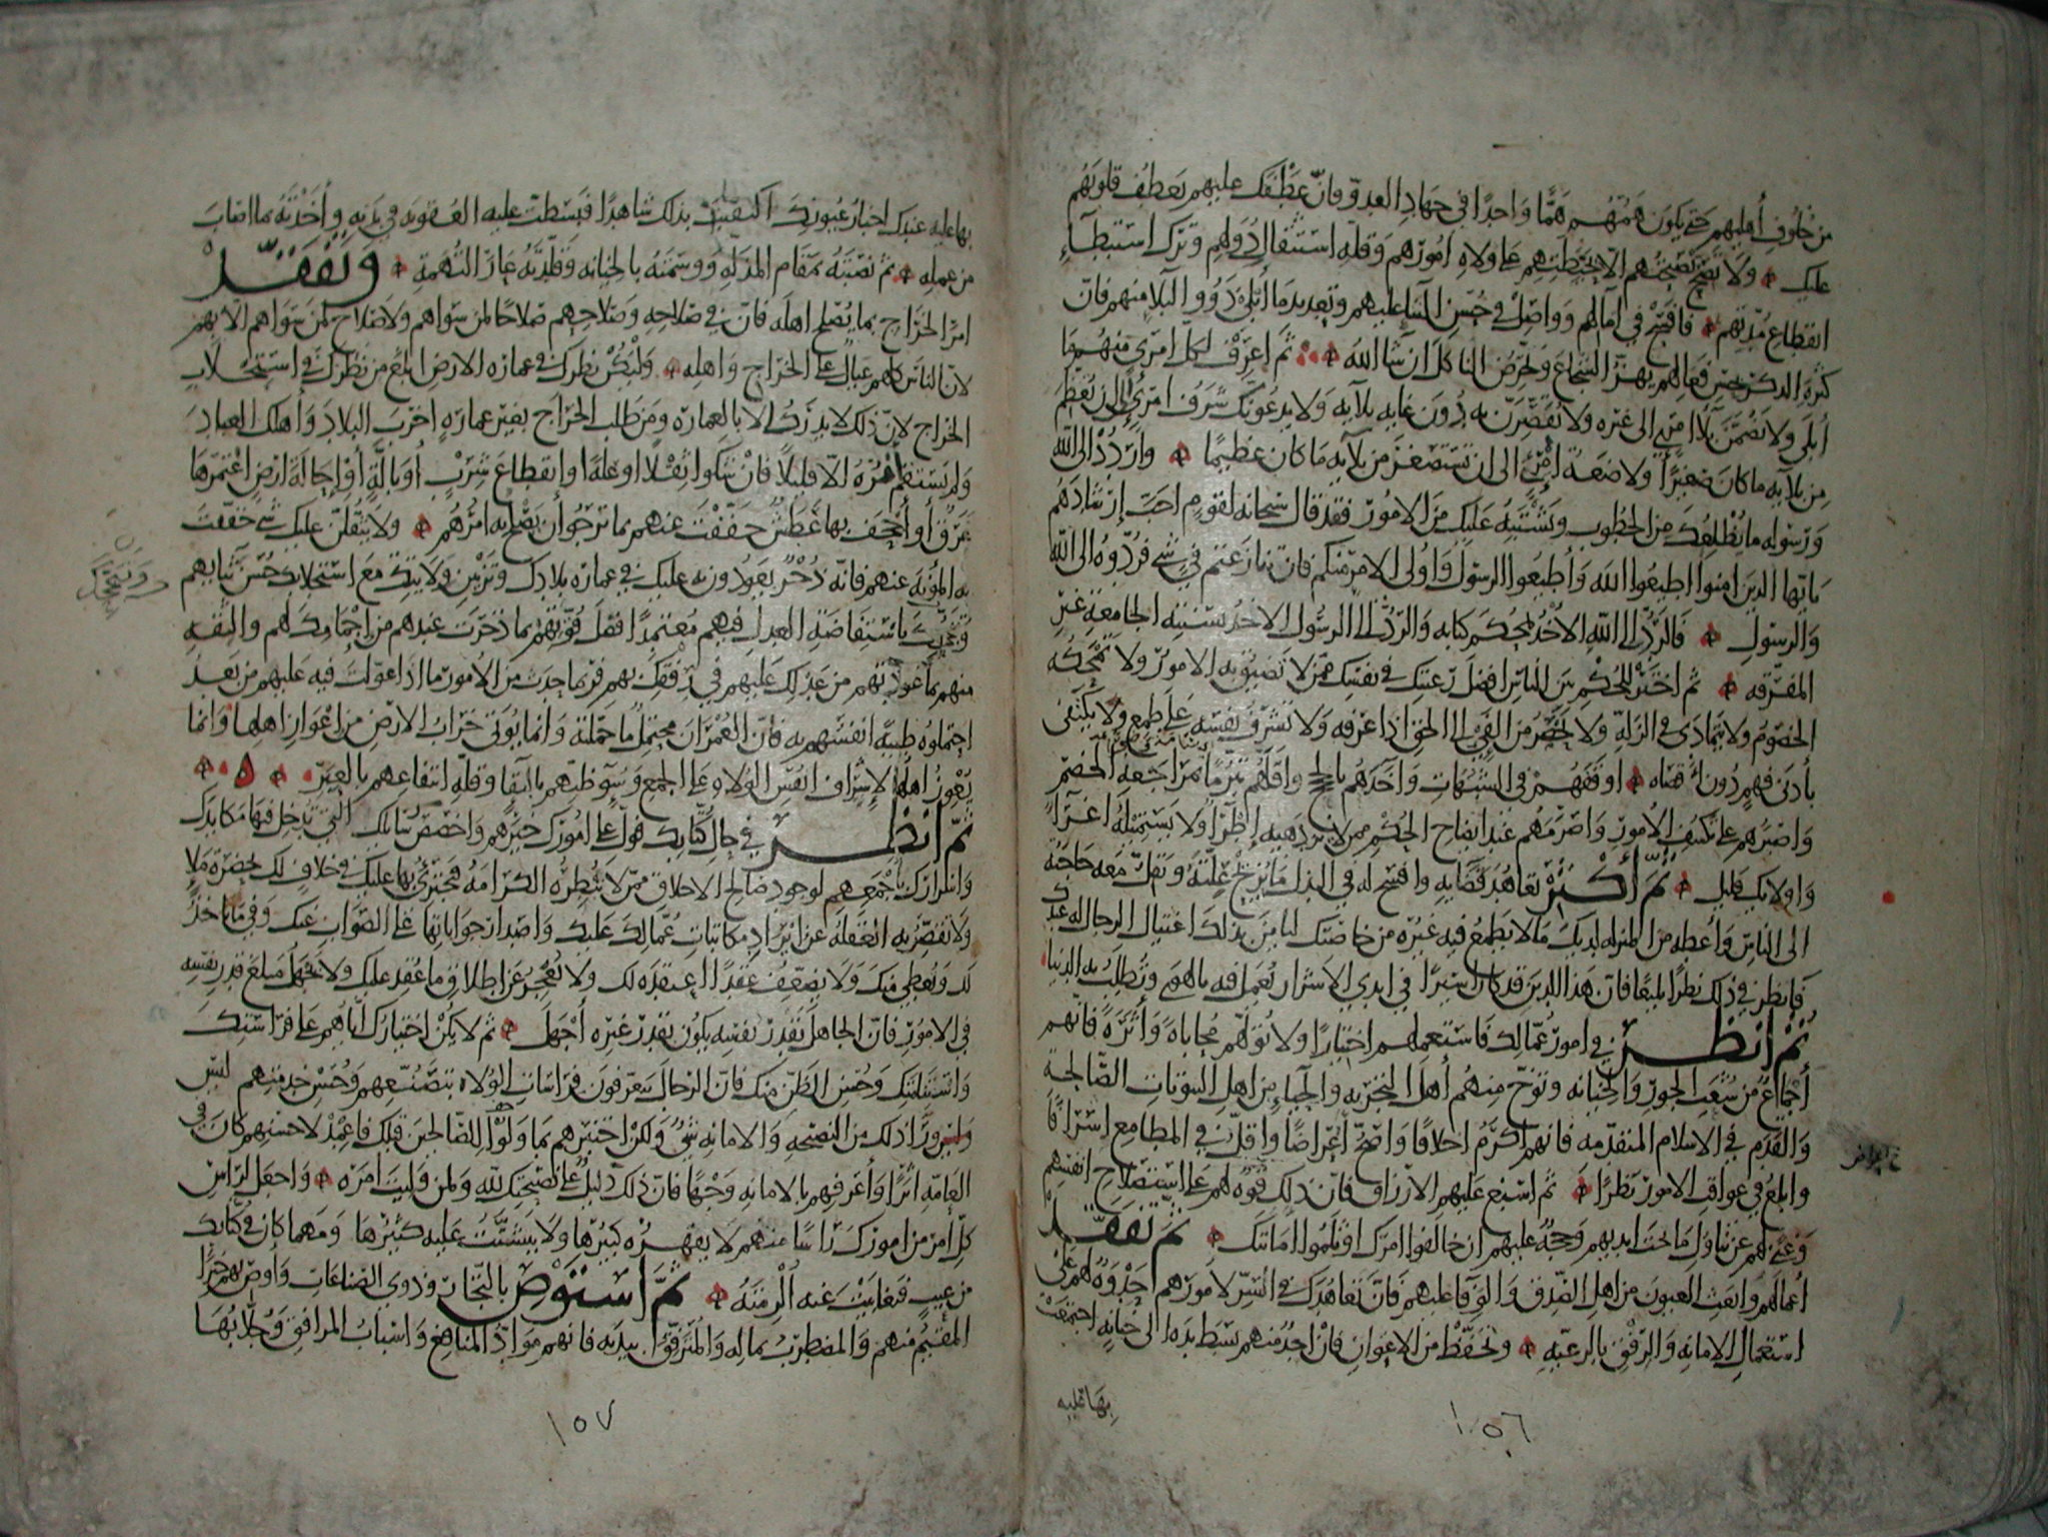 من خلوف أهليهم حتى يكون همهم هما واحدا في جهاد العدو فان عطفك عليهم يعطف قلوبهم
عليك ولا تصح نصيحتهم الا بحيطتهم على ولاة امورهم وقلة استثقال دولهم وترك استبطاء
انقطاع مدتهم فافسح في آمالهم وواصل في حسن الثناء عليهم وتعديد ما أبلى ذوو البلاء منهم فان
كثرة الذكر لحسن فعالهم تهز الشجاع وتحرض الناكل ان شا الله ثم اعرف لكل امرئ منهم ما
أبلى ولا تضمن بلاء امرئ الى غيره ولا تقصرن به دون غاية بلايه ولا يدعونك شرف امرئ إلى ان تعظم
من بلايه ما كان صغيرا ولا ضعة امرئ الى ان تستصغر من بلايه ما كان عظيما واردد الى الله
ورسوله ما يضلعك من الخطوب ويشتبه عليك من الامور فقد قال سبحانه لقوم احب إرشادهم
يايها الذين امنوا اطيعوا الله وأطيعوا الرسول وأولى الامر منكم فان تنازعتم في شي فردوه الى الله
والرسول فالرد الى الله الاخذ بمحكم كتابه والرد الى الرسول الاخذ بسنته الجامعة غير
المفرقه ثم اختر للحكم بين الناس افضل رعيتك في نفسك ممن لا تضيق به الامور ولا تمحكه
الخصوم ولا يتمادى في الزلة ولا يحصر من الفي الى الحق اذا عرفه ولا تشرف نفسه على طمع ولا يكتفي
بأدنى فهم دون اقصاه اوقفهم في الشبهات وآخذهم بالحجج واقلهم تبرما بمراجعة الخصم
واصبرهم على تكشف الامور واصرمهم عند ايضاح الحكم ممن لا يزدهيه إطراء ولا يستميله اغراء
واولايك قليل ثم أكثر تعاهد قضايه وافسح له في البذل ما يزيح علته وتقل معه حاجته
الى الناس وأعطه من المنزلة لديك ما لا يطمع فيه غيره من خاصتك ليامن بذلك اغتيال الرجال له عندك
فانظر في ذلك نظرا بليغا فان هذا الدين قد كان اسيرا في ايدي الاشرار يعمل فيه بالهوى وتطلب به الدنيا
ثم انظر في امور عمالك فاستعملهم اختبارا ولا تولهم محاباة وأثرة فانهم
جماع من شعب الجور والخيانه وتوخ منهم أهل التجربه والحياء من اهل البيوتات الصالحة
والقدم في الاسلام المتقدمه فانهم اكرم اخلاقا واصح أعراضا واقل في المطامع اشرافا
وابلغ في عواقب الامور نظرا ثم اسبغ عليهم الارزاق فان ذلك قوة لهم على استصلاح انفسهم
وغنى لهم عن تناول ما تحت ايديهم وحجة عليهم ان خالفوا امرك او ثلموا امانتك ثم تفقد
أعمالهم وابعث العيون من اهل الصدق والوفا عليهم فان تعاهدك في السر لامورهم حدوة لهم على
استعمال الامانه والرفق بالرعيه وتحفظ من الاعوان فان احد منهم بسط يده الى خيانة اجتمعت
بها عليه
١٥٦
بها عليه عندك اخبار عيونك اكتفيت بذلك شاهدا فبسطت عليه العقوبه في بدنه وأخذته بما اصاب
من عمله ثم نصبته بمقام المذلة ووسمته بالخيانه وقلدته عار التهمة وتفقد
امر الخراج بما يصلح اهله فان في صلاحه وصلاحهم صلاحا لمن سواهم ولا صلاح لمن سواهم الا بهم
لان الناس كلهم عيال على الخراج واهله وليكن نظرك في عمارة الارض ابلغ من نظرك في استجلاب
الخراج لان ذلك لا يدرك الا بالعمارة ومن طلب الخراج بغير عمارة اخرب البلاد وأهلك العباد
ولم يستقم امره الا قليلا فان شكوا ثقلا او علة او انقطاع شرب أو بالة أو إحالة ارض اغتمرها
غرق أو أجحف بها عطش خففت عنهم بما ترجو أن يصلح به امرهم ولا يثقلن عليك شي خففت
به المؤنه عنهم فانه ذخر يعودون به عليك في عمارة بلادك وتزيين ولايتك مع استجلابك حسن ثنايهم
وتبجحك باستفاضة العدل فيهم معتمدا فضل قوتهم بما ذخرت عندهم من إجمامك لهم والثقه
منهم بما عودتهم من عدلك عليهم في رفقك بهم فربما حدث من الامور ما اذا عولت فيه عليهم من بعد
احتملوه طيبة انفسهم به فان العمران محتمل ما حملته وانما يوتى خراب الارض من إعواز اهلها وانما
يعوز أهلها لإشراف انفس الولاه على الجمع وسوء ظنهم بالبقا وقلة انتفاعهم بالعبر
ثم انظر في حال كتابك فول على امورك خيرهم واخصص رسايلك التي تدخل فيها مكايدك
واسرارك بأجمعهم لوجود صالح الاخلاق ممن لا تبطره الكرامة فيجترئ بها عليك في خلاف لك بحضرة ملا
ولا تقصر به الغفلة عن ايراد مكاتبات عمالك عليك واصدار جواباتها على الصواب عنك وفيما ياخذ
لك ويعطي منك ولا يضعف عقدا اعتقده لك ولا يعجز عن اطلاق ما عقد عليك ولا يجهل مبلغ قدر نفسه
في الامور فان الجاهل بقدر نفسه يكون بقدر غيره أجهل ثم لا يكن اختيارك اياهم على فراستك
واستنامتك وحسن الظن منك فان الرجال يتعرفون لفراسات الولاه بتصنعهم وحسن خدمتهم ليس
وراء ذلك من النصيحه والامانه شي ولكن اختبرهم بما ولوا للصالحين قبلك فاعمد لاحسنهم كان في
العامة اثرا وأعرفهم بالامانه وجها فان ذلك دليل على نصيحتك لله ولمن وليت امره واجعل لراس
كل امر من امورك راسا منهم لا يقهره كبيرها ولا يتشتت عليه كثيرها ومهما كان في كتابك
من عيب فتغابيت عنه الزمته ثم استوص بالتجار وذوي الصناعات وأوص بهم خيرا
المقيم منهم والمضطرب بماله والمترفق ببدنه فانهم مواد المنافع واسباب المرافق وجلابها
١٥٧